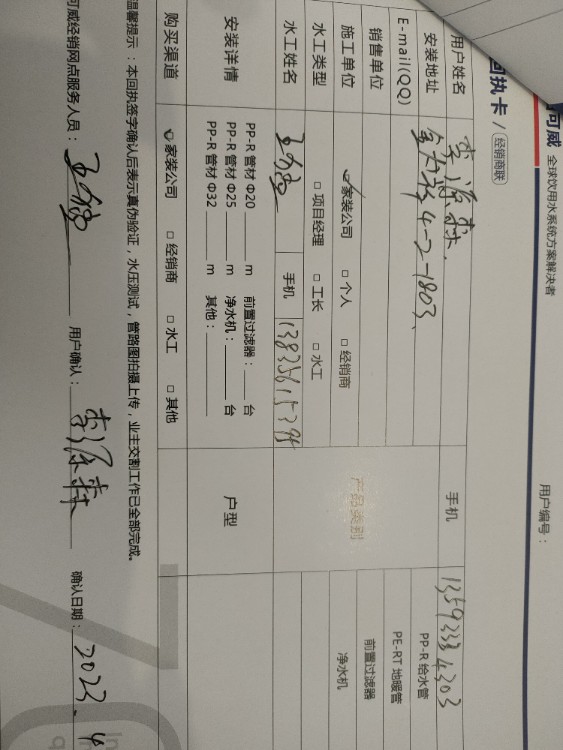 可威 全球饮用水系统方案解决者
回执卡 / 经销商联
用户编号：
用户姓名 李源森 手机 13593334303
安装地址 4-2-1803
E-mail(QQ) PP-R 给水管
销售单位 产品类别 PE-RT 地暖管
施工单位 家装公司 □ 个人 □ 经销商 前置过滤器
水工类型 □ 项目经理 □ 工长 □ 水工 净水机
水工姓名 手机
安装详情 PP-R 管材 Φ20 ____ m 前置过滤器：____ 台 户型
PP-R 管材 Φ25 ____ m 净水机：____ 台
PP-R 管材 Φ32 ____ m 其他：____
购买渠道 家装公司 □ 经销商 □ 水工 □ 其他
温馨提示：本回执签字确认后表示真伪验证，水压测试，管路图拍摄上传，业主交割工作已全部完成。
可威经销网点服务人员： 用户确认：李源森 确认日期：2023.4